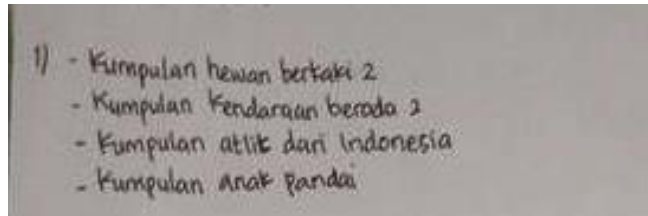 1) - Kumpulan hewan berkaki 2
- Kumpulan Kendaraan beroda 2
- Kumpulan atlit dari Indonesia
- Kumpulan anak pandai